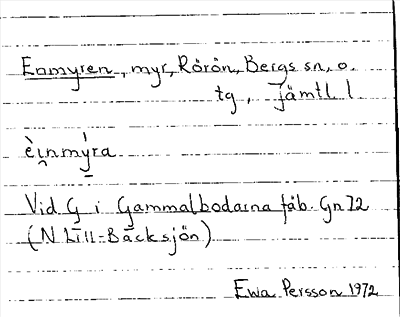 Enmyren, myr, Rörön, Bergs sn, o.
tg, Jämtl l
èi̯nmýra
Vid G i Gammalbodarna fäb. Gn 72
(N Lill-Bäcksjön)
Ewa Persson 1972